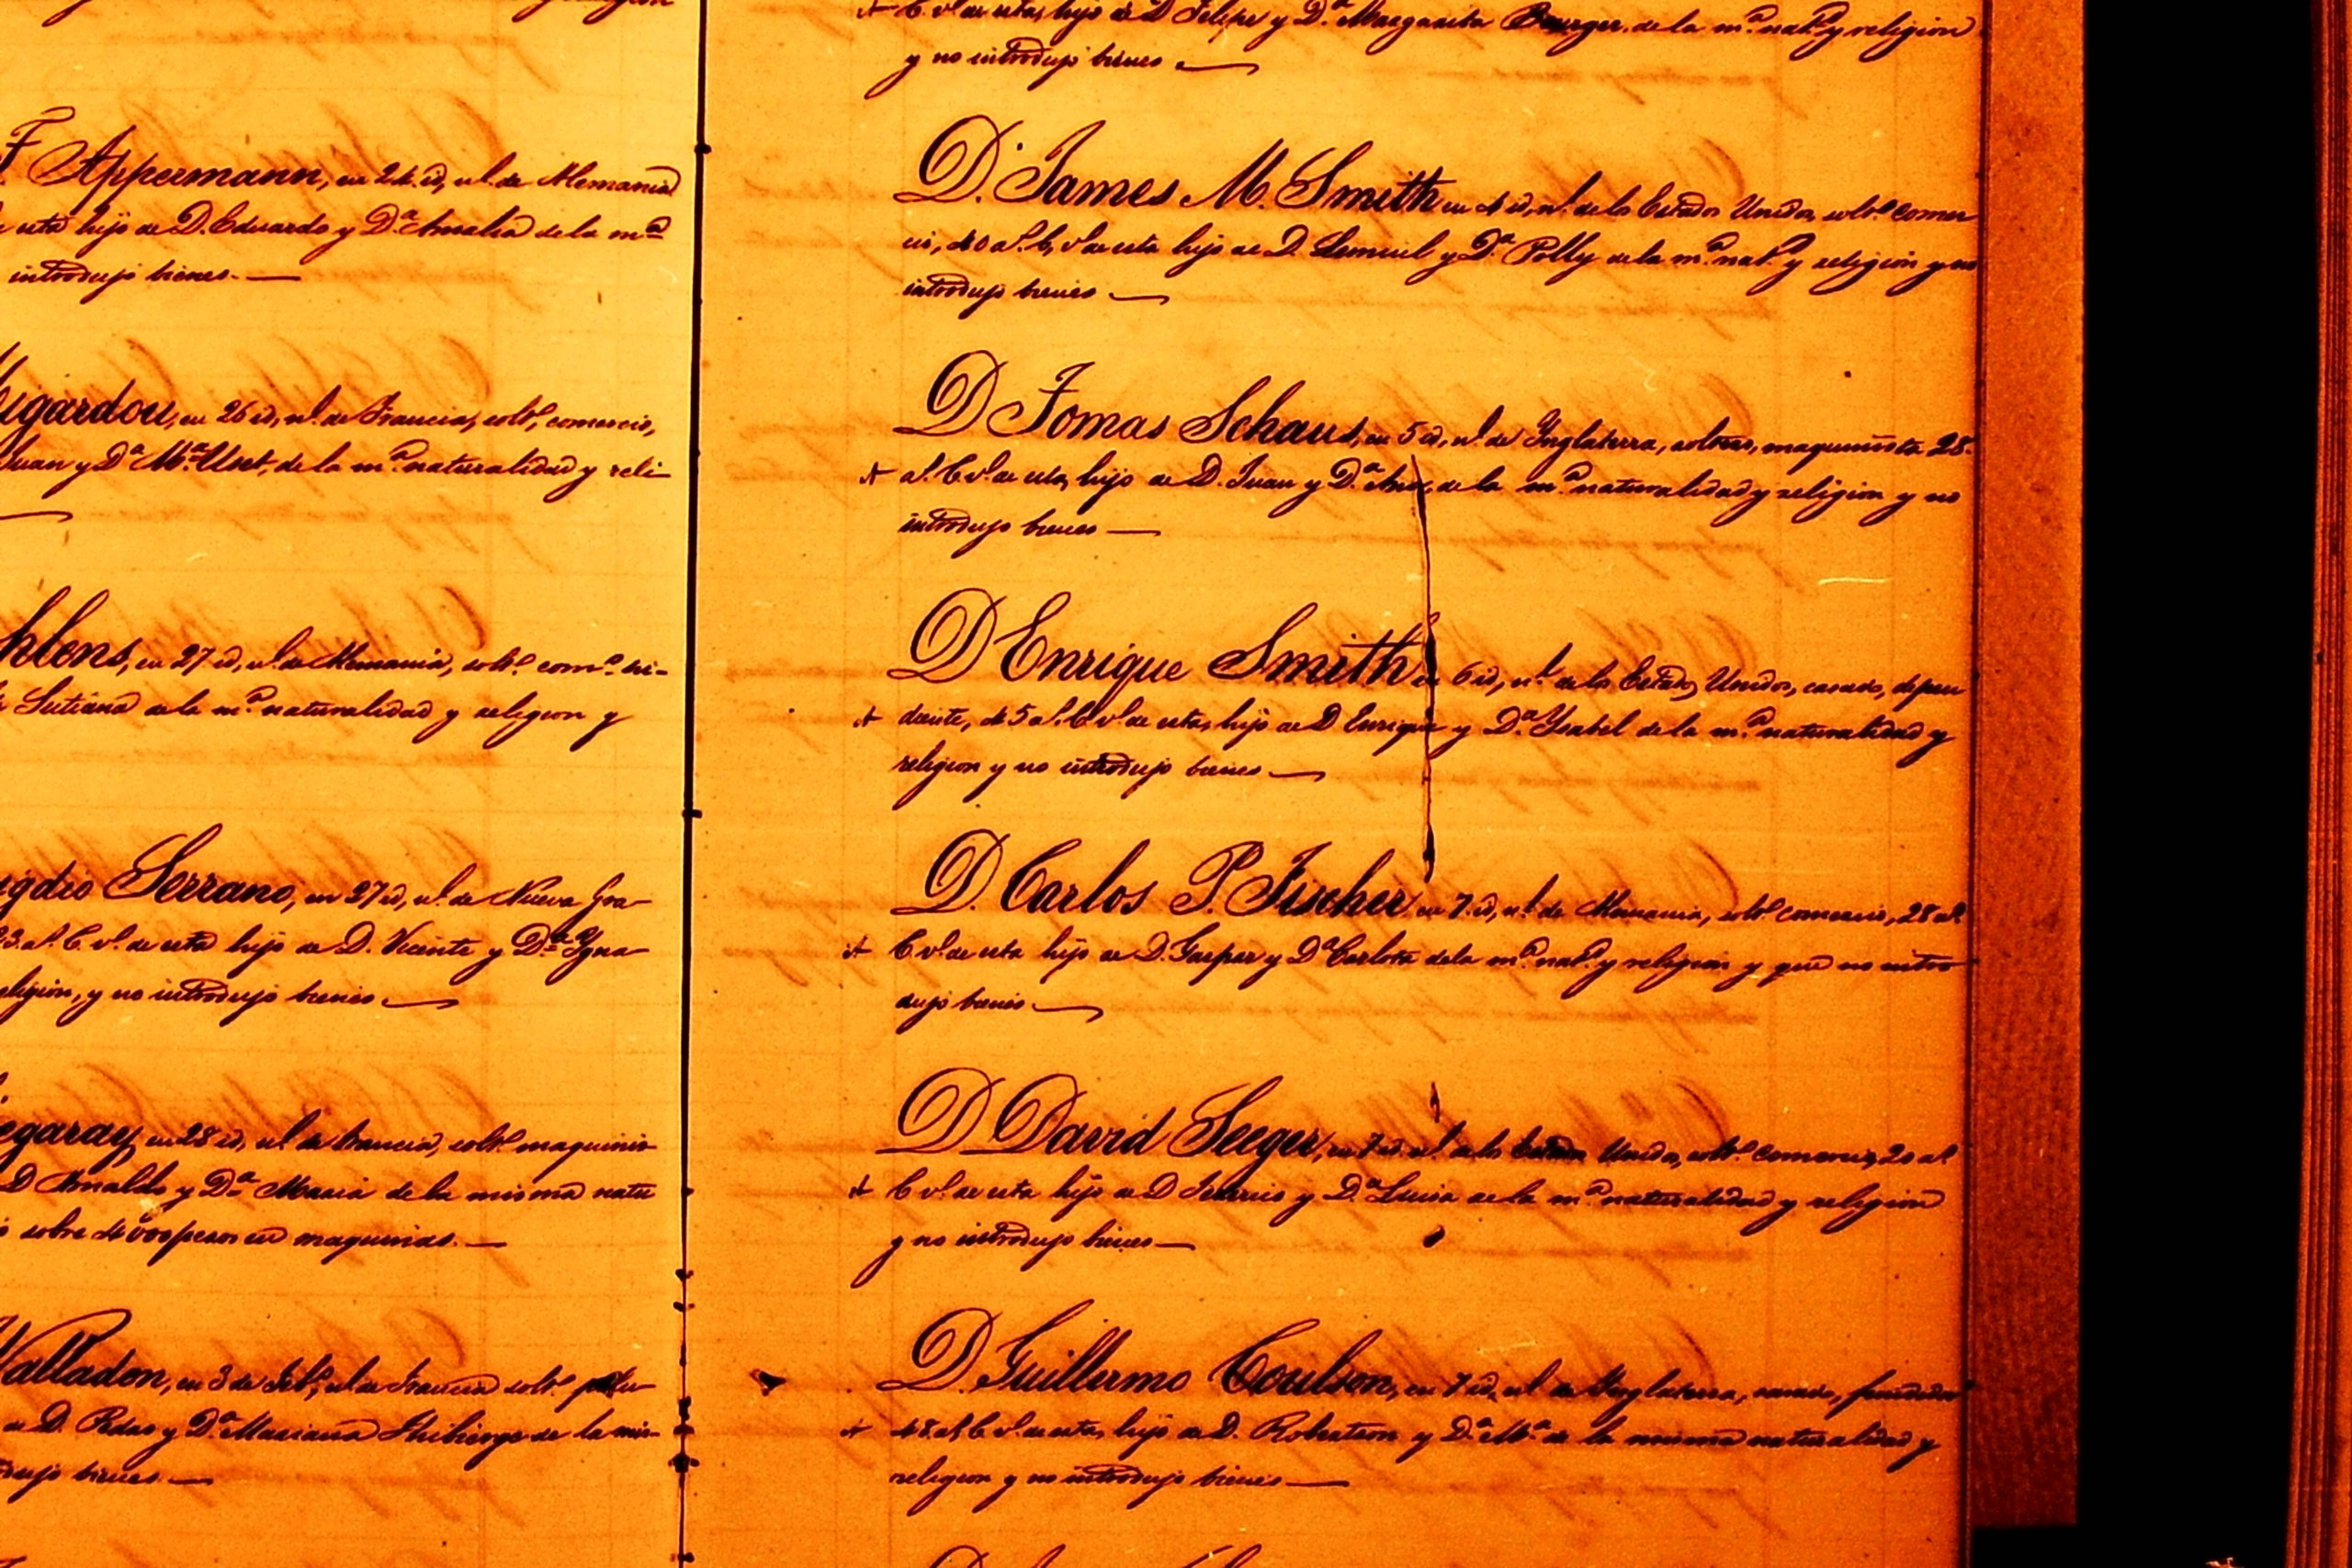 F. Appermann, en 24. id, nl. de Alemania
esta hijo de D. Eduardo y Dª Amalia de la mª
introdujo bienes.
igardou, en 26 id, nl. de Francia, solt°, comercio,
Juan y Dª Mª Uset, de la mª naturalidad y reli-
hlens, en 27 id, nl. de Alemania, solt° com°
Sutiana de la mª naturalidad y religion y
igdio Serrano, en 27 id, nl. de Nueva Gra-
23. a°. C. v°. de esta hijo de D. Vicente y Dª Ygna-
eligion, y no introdujo bienes.
egaray, en 28 id, nl. de Francia, solt° maquinis-
D Arnaldo y Dª Maria de la misma natu
sobre 4000 pesos en maquinias.
Valladon, en 3 de Set°, nl. de Francia solt°
de D. Pedro y Dª Mariana de la mis-
dujo bienes.
C. v°. de esta, hijo de D Felipe y Dª Margarita de la mª nat.ª y religion
y no introdujo bienes
D. James M. Smith en 4 id, nl. de los Estados Unidos, solt° comer
cio, 40 a°. C, v°. de esta hijo de D. Lemuel y Dª Polly de la mª nat.ª y religion y no
introdujo bienes
D Tomas Schaus, en 5 id, nl. de Ynglaterra, soltero, maquinista 28.
a°. C. v°. de esta, hijo de D. Juan y Dª Ana, de la mª naturalidad y religion y no
introdujo bienes
D Enrique Smith en 6 id, nl. de los Estados Unidos, casado, depen
diente, 45 a°. C. v°. de esta, hijo de D Enrique y Dª Ysabel de la mª naturalidad y
religion y no introdujo bienes
D. Carlos P. Fischer en 7. id, nl. de Alemania, solt° comercio, 28 a°.
C. v°. de esta hijo de D. Gaspar y Dª Carlota de la mª nat.ª y religion y que no intro
dujo bienes
D David Seeger, en 7 id. nl. de los Estados Unidos, solt° comercio, 20 a°.
C v°. de esta hijo de D Federico y Dª Luisa de la mª naturalidad y religion
y no introdujo bienes
D. Guillermo Coulson, en 7 id, nl. de Ynglaterra, casado, fundidor
48 a°. C. v°. de esta, hijo de D. Robertson y Dª Mª de la misma naturalidad y
religion y no introdujo bienes